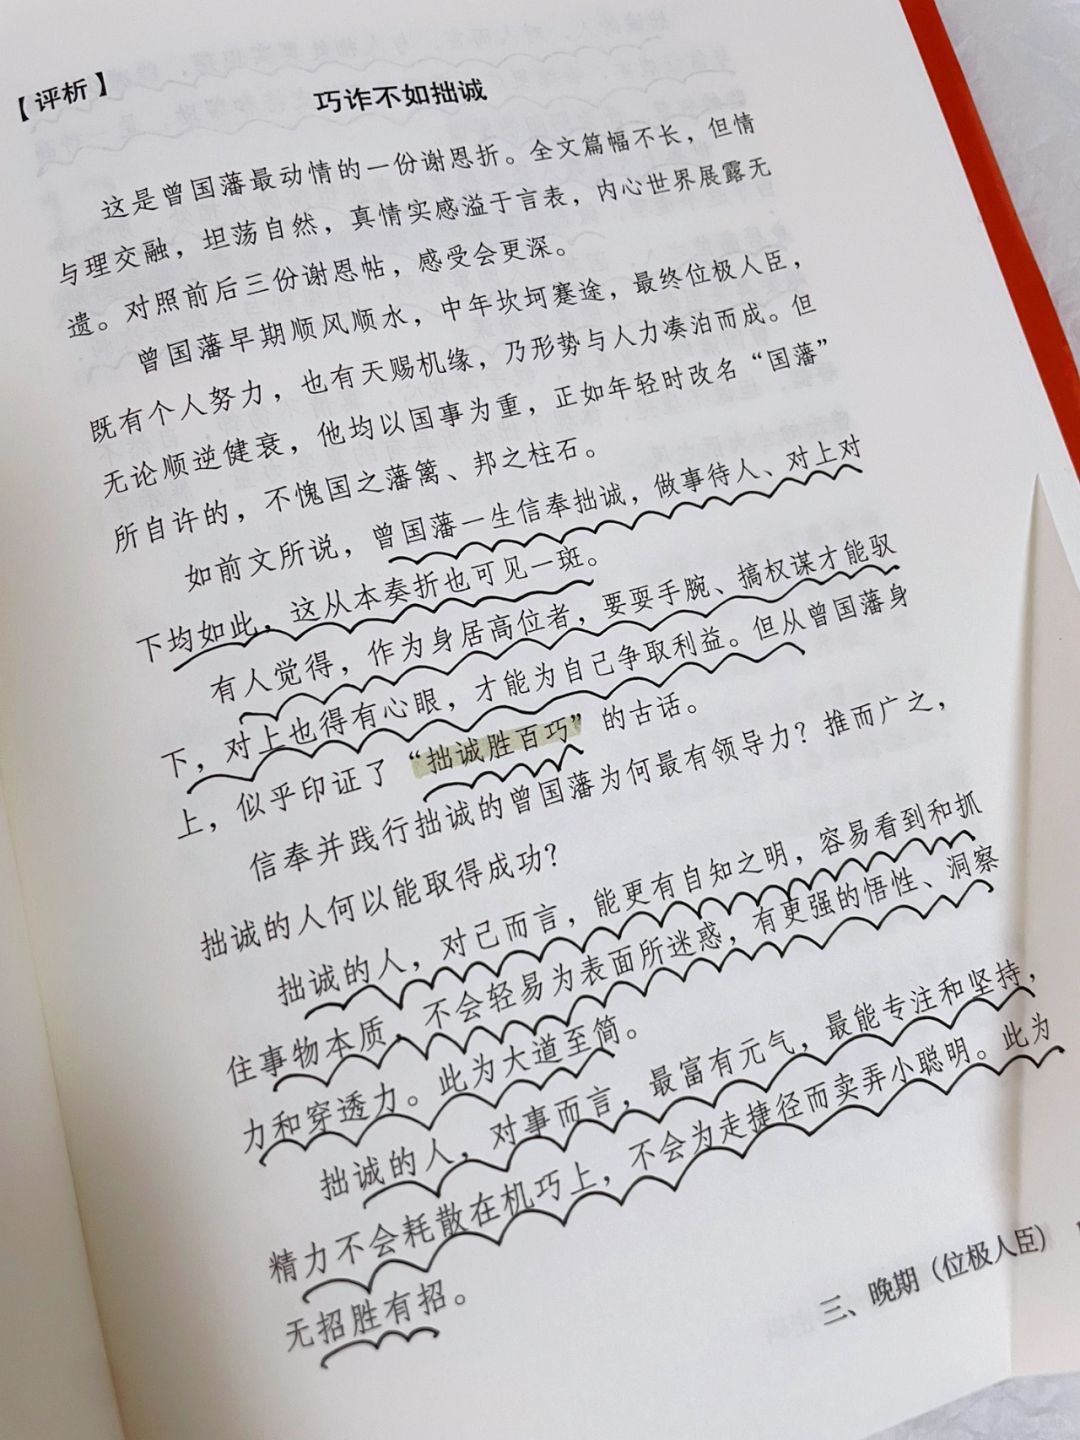 【评析】
巧诈不如拙诚
这是曾国藩最动情的一份谢恩折。全文篇幅不长，但情
与理交融，坦荡自然，真情实感溢于言表，内心世界展露无
遗。对照前后三份谢恩帖，感受会更深。
曾国藩早期顺风顺水，中年坎坷蹇途，最终位极人臣，
既有个人努力，也有天赐机缘，乃形势与人力凑泊而成。但
无论顺逆健衰，他均以国事为重，正如年轻时改名“国藩”
所自许的，不愧国之藩篱、邦之柱石。
如前文所说，曾国藩一生信奉拙诚，做事待人、对上对
下均如此，这从本奏折也可见一斑。
有人觉得，作为身居高位者，要耍手腕、搞权谋才能驭
下，对上也得有心眼，才能为自己争取利益。但从曾国藩身
上，似乎印证了“拙诚胜百巧”的古话。
信奉并践行拙诚的曾国藩为何最有领导力？推而广之，
拙诚的人何以能取得成功？
拙诚的人，对己而言，能更有自知之明，容易看到和抓
住事物本质，不会轻易为表面所迷惑，有更强的悟性、洞察
力和穿透力。此为大道至简。
拙诚的人，对事而言，最富有元气，最能专注和坚持，
精力不会耗散在机巧上，不会为走捷径而卖弄小聪明。此为
无招胜有招。
三、晚期（位极人臣）